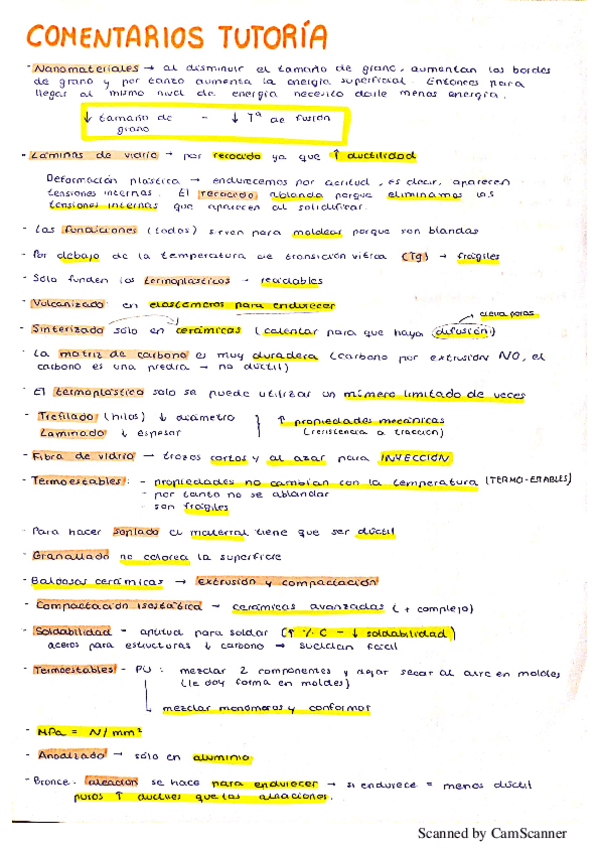 COMENTARIOS TUTORÍA
- Nanomateriales → al disminuir el tamaño de grano, aumentan los bordes
de grano y por tanto aumenta la energía superficial. Entonces para
llegar al mismo nivel de energía necesito darle menos energía.
↓ tamaño de - ↓ Tª de fusión
grano
- Láminas de vidrio → por recocido ya que ↑ ductilidad
Deformación plástica → endurecemos por acritud, es decir, aparecen
tensiones internas. El recocido ablanda porque eliminamos las
tensiones internas que aparecen al solidificar.
- Las fundiciones (todas) sirven para moldear porque son blandas
- Por debajo de la temperatura de transición vítrea (Tg) → frágiles
- Sólo funden los termoplásticos → reciclables
- Vulcanizado: en elastómeros para endurecer
→ cierra poros
- Sinterizado sólo en cerámicas (calentar para que haya difusión)
- La matriz de carbono es muy duradera (carbono por extrusión NO, el
carbono es una piedra → no dúctil)
- El termoplástico solo se puede utilizar un número limitado de veces
- Trefilado (hilos) ↓ diámetro
Laminado ↓ espesor
↑ propiedades mecánicas
(resistencia a tracción)
- Fibra de vidrio → trozos cortos y al azar para INYECCIÓN
- Termoestables: - propiedades no cambian con la temperatura (TERMO-ESTABLES)
- por tanto no se ablandar
- son frágiles
- Para hacer soplado el material tiene que ser dúctil
- Granallado no colorea la superficie
- Baldosas cerámicas → extrusión y compactación
- Compactación isostática → cerámicas avanzadas (+ complejo)
- Soldabilidad - aptitud para soldar (↑ % C - ↓ soldabilidad)
aceros para estructuras ↓ carbono → sueldan fácil
- Termoestables - PU: mezclar 2 componentes y dejar secar al aire en moldes
(le doy forma en moldes)
mezclar monómeros y conformar
- MPa = N/mm²
- Anodizado → sólo en aluminio
- Bronce: aleación se hace para endurecer → si endurece = menos dúctil
puros ↑ dúctiles que las aleaciones.
Scanned by CamScanner